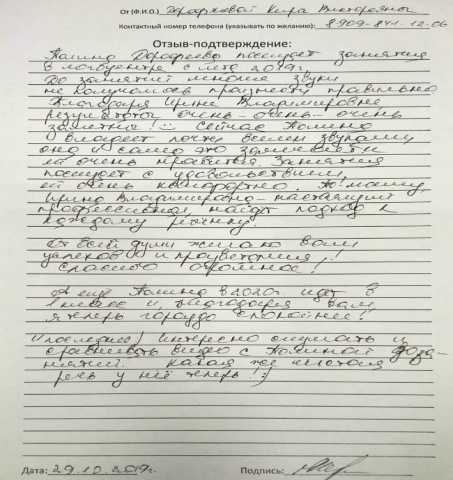 От (Ф.И.О.) Киры Викторовны
Контактный номер телефона (указывать по желанию): 8909-841-12-06
Отзыв-подтверждение:
Полина Дорофеева посещает занятия
в логоцентре с лета 2019г.
До занятий многие звуки
не получалось произнести правильно
Благодаря Ирине Владимировне
результаты очень-очень-очень
заметны! :) Сейчас Полина
владеет почти всеми звуками,
она и сама это замечает и
ей очень нравится. Занятия
посещает с удовольствием,
ей очень комфортно.
Ирина Владимировна - настоящий
профессионал, найдет подход к
каждому
От всей души желаю вам
успехов и процветания!
спасибо огромное!
А ещё Полина в 2020г идет в
1 класс и, благодаря вам,
я теперь гораздо спокойнее!
И последнее! Интересно слушать и
сравнивать видео с Полиной до за-
нятий. Какая же чистая
речь у неё теперь! :)
Дата: 29.10.2019г. Подпись: